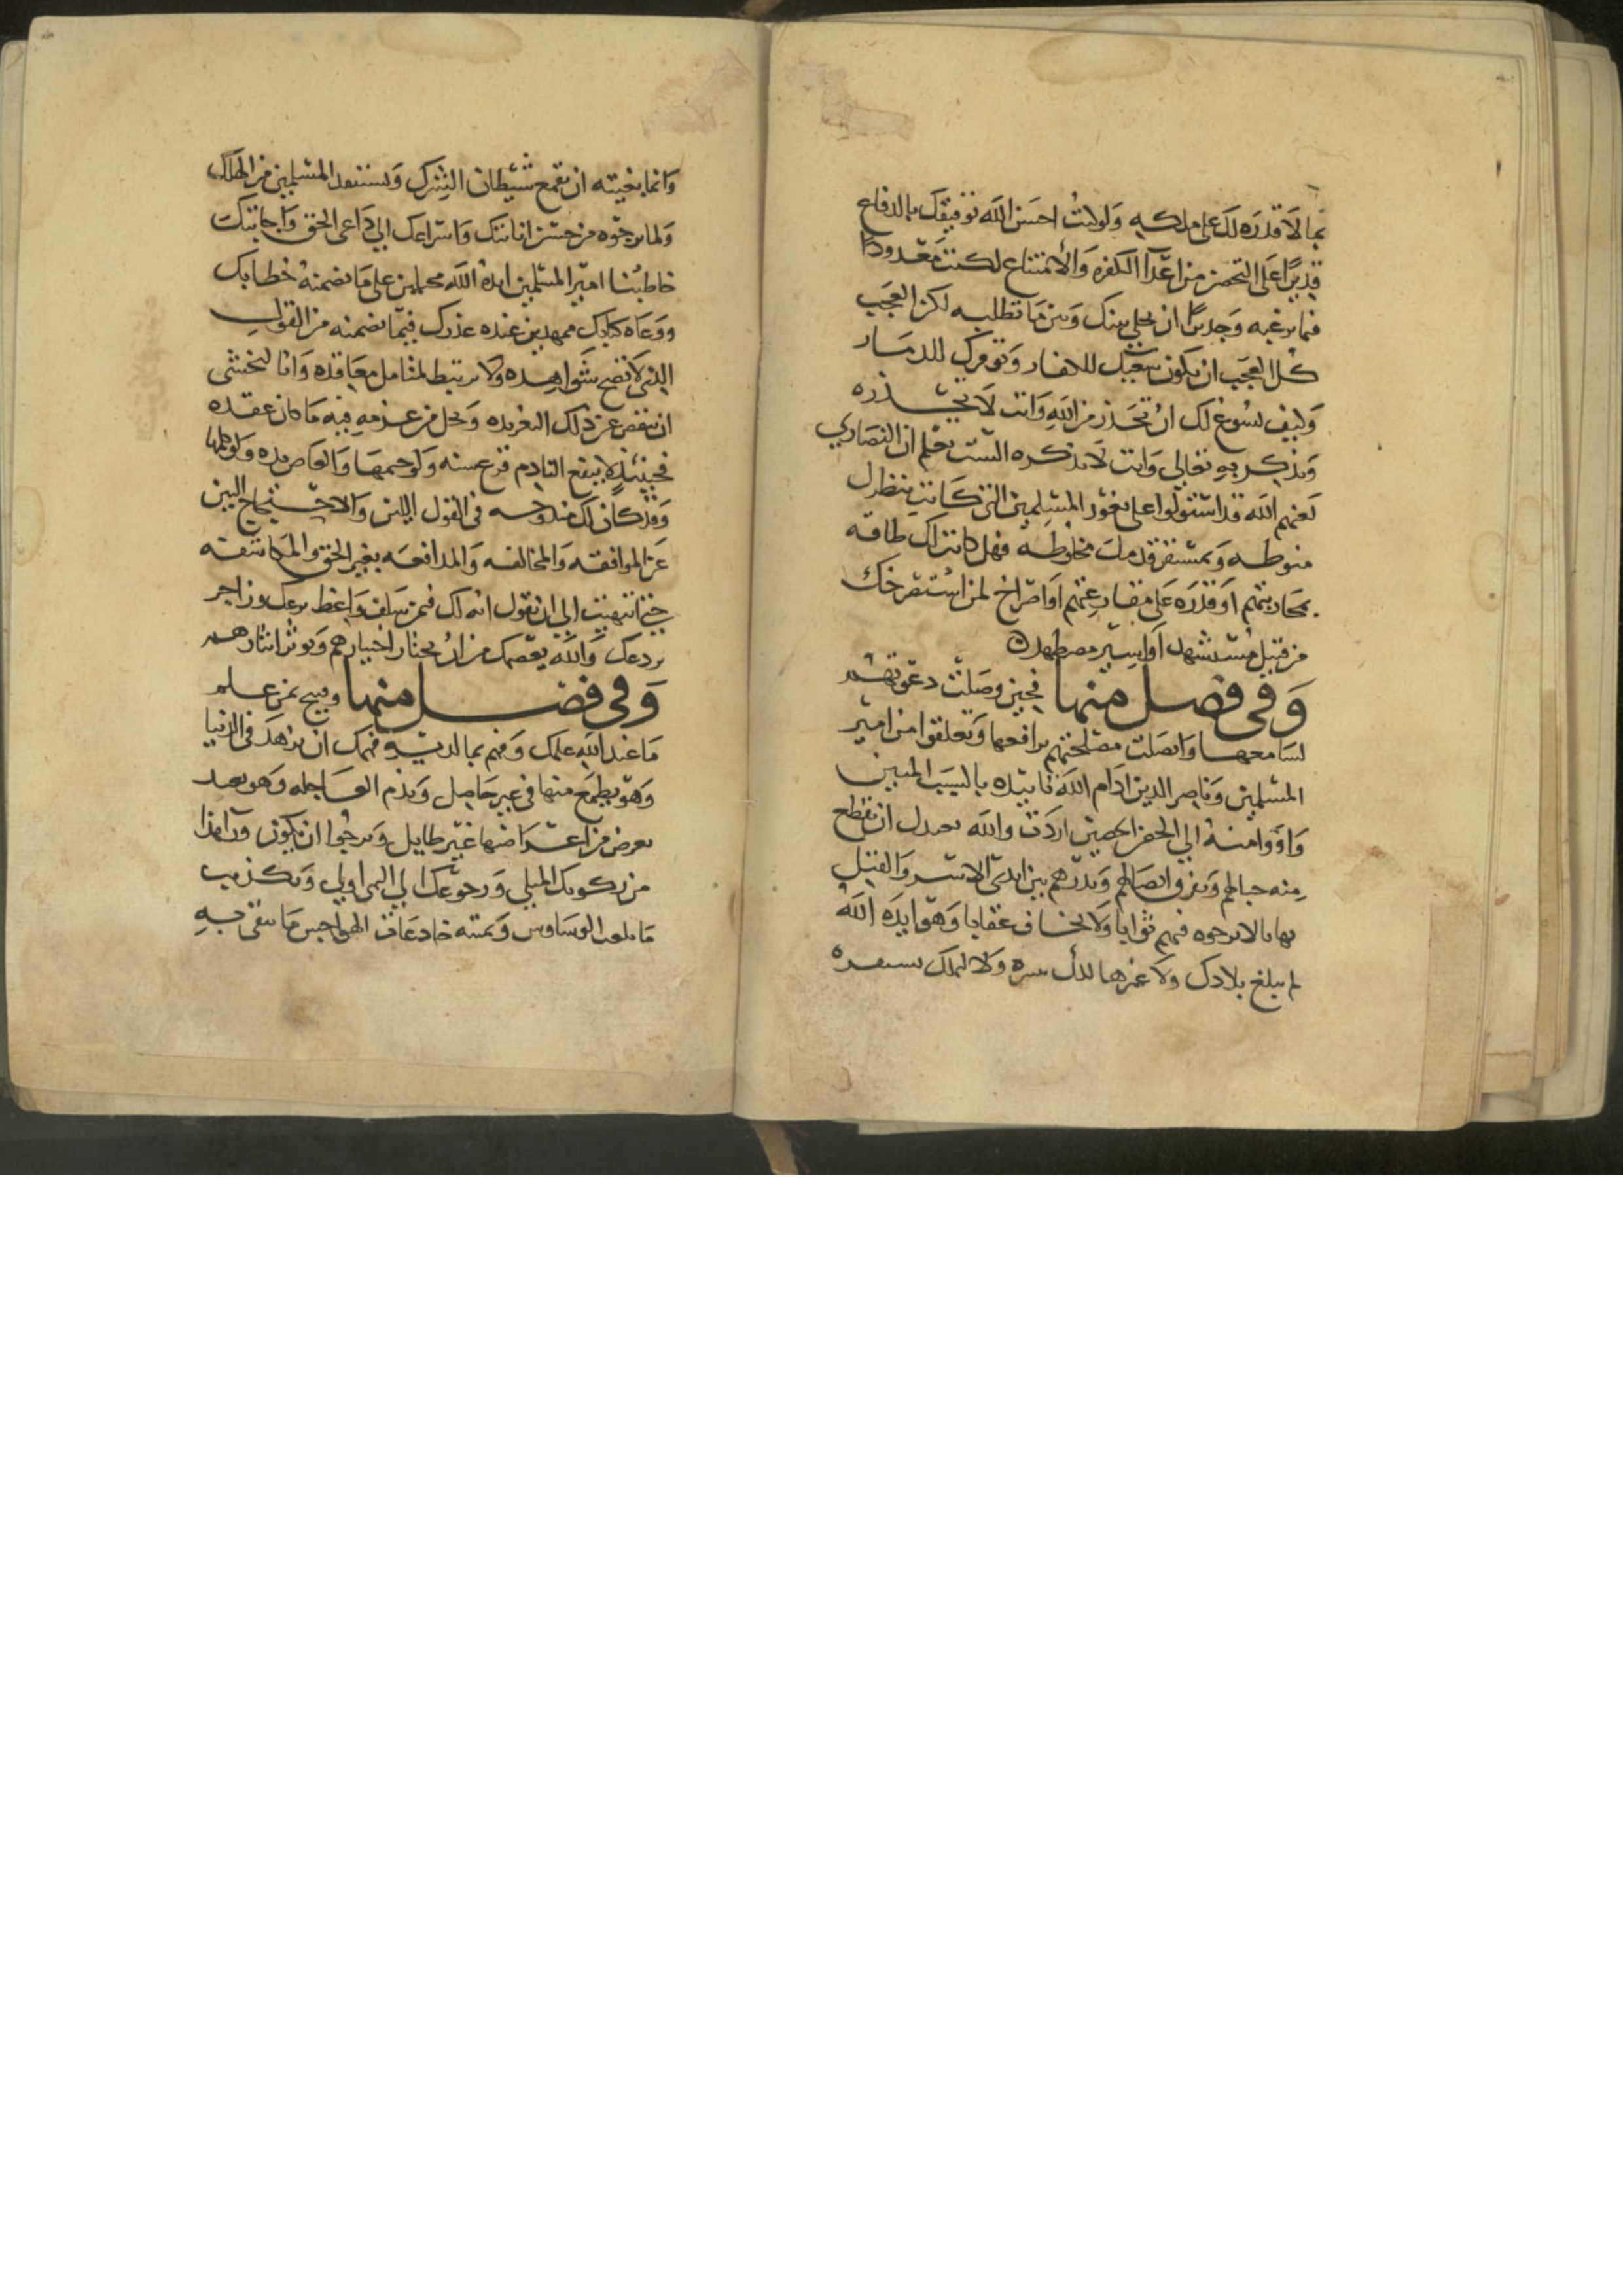 بما لا قدره لك على ملكه ولو كنت احسن الله توفيقك بالدفاع
قديرًا على التحصن من اعدآ الكفره والامتناع لكنت معدودا
فيما ترغبه وجديرًا ان يخلى بينك وبين ما تطلبه لكن العجب
كل العجب ان يكون سعيك للانفار وتوفرك للدينار
وكيف يسوغ لك ان تحذر من الله وانت لا تحذره
وتذكر به تعالى وانت لا تذكره الست تعلم ان النصارى
لعنهم الله قد استولوا على ثغور المسلمين التي كانت بنظرك
منوطه وبمستقر قدمك مخلوطه فهل كانت لك طاقه
بمحاربتهم او قدره على مقارعتهم او اصراخ لمن استصرخك
من قتيل مستشهد او اسير مضطهد
وفي فصل منها فحين وصلت دعوتهم
لسامعها واتصلت مصلحتهم برافعها وتعلقوا من امير
المسلمين وناصر الدين ادام الله تاييده بالسبب المتين
وآووا منه الى الحرز الحصين اردت والله يعدل ان تقطع
منه حبالهم وتفرق اتصالهم وتذرهم بين ايدى الاسر والقتل
نهابا لا ترجوه فيهم ثوابا ولا تخاف عقابا وهو ايده الله
لم يبلغ بلادك ولا غيرها لمال ولا لملك
وانما بغيته ان يقمع شيطان الشرك ويستنقذ المسلمين من الهلك
ولما نرجوه من حسن انابتك واسراعك الى داعى الحق واجابتك
خاطبنا امير المسلمين ايده الله مجملين على ما تضمنه خطابك
ووعاه كتابك ممهدين عنده عذرك فيما تضمنه من القول
الذي لا تصح شواهده ولا يرتبط لمتامل معاقده وانا لنخشى
ان ينفض عن ذلك التغريده ويحل من عزمه فيه ما كان عقده
فحينئذ لا ينفع النادم قرع سنه ولو حمها والعاض يده ولو كلها
وقد كان لك مندوحه في القول اللين والاحتجاج البين
عن الموافقه والمخالفه والمدافعه بغير الحق والمكاشفه
حتى انتهيت الى ان تقول انه لك فيمن سلف واعظ يزعك وزاجر
يردعك والله يعصمك من ان تختار اختيارهم وتوثر اثارهم
وفي فصل منها وقبيح بمن علم
ما عند الله علمك وفهم بما لديه فهمك ان يزهد في الدنيا
وهو يطمع منها في غير حاصل ويذم العاجله وهو بعد
يعرض من اعراضها غير طايل ونرجوا ان يكون ورآ هذا
من ركوبك المثلى ورجوعك الى التي اولى وتكذيب
ما الوساوس وتمنيه خادعات الهواجس ما نتقي به